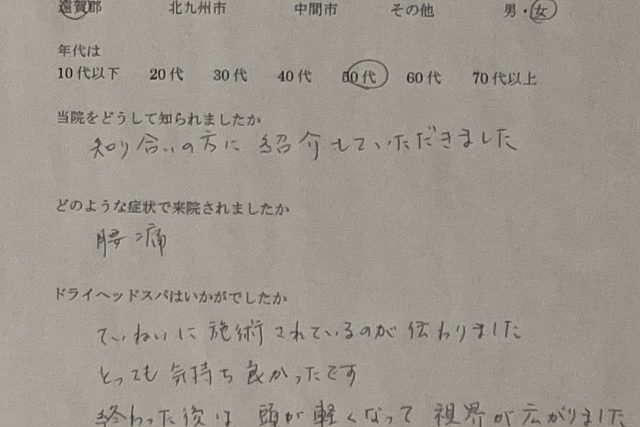 遠賀郡 北九州市 中間市 その他 男・女
年代は
10代以下 20代 30代 40代 50代 60代 70代以上
当院をどうして知られましたか
知り合いの方に紹介していただきました
どのような症状で来院されましたか
腰痛
ドライヘッドスパはいかがでしたか
ていねいに施術されているのが伝わりました
とっても気持ち良かったです
終わった後は頭が軽くなって視界が広がりました